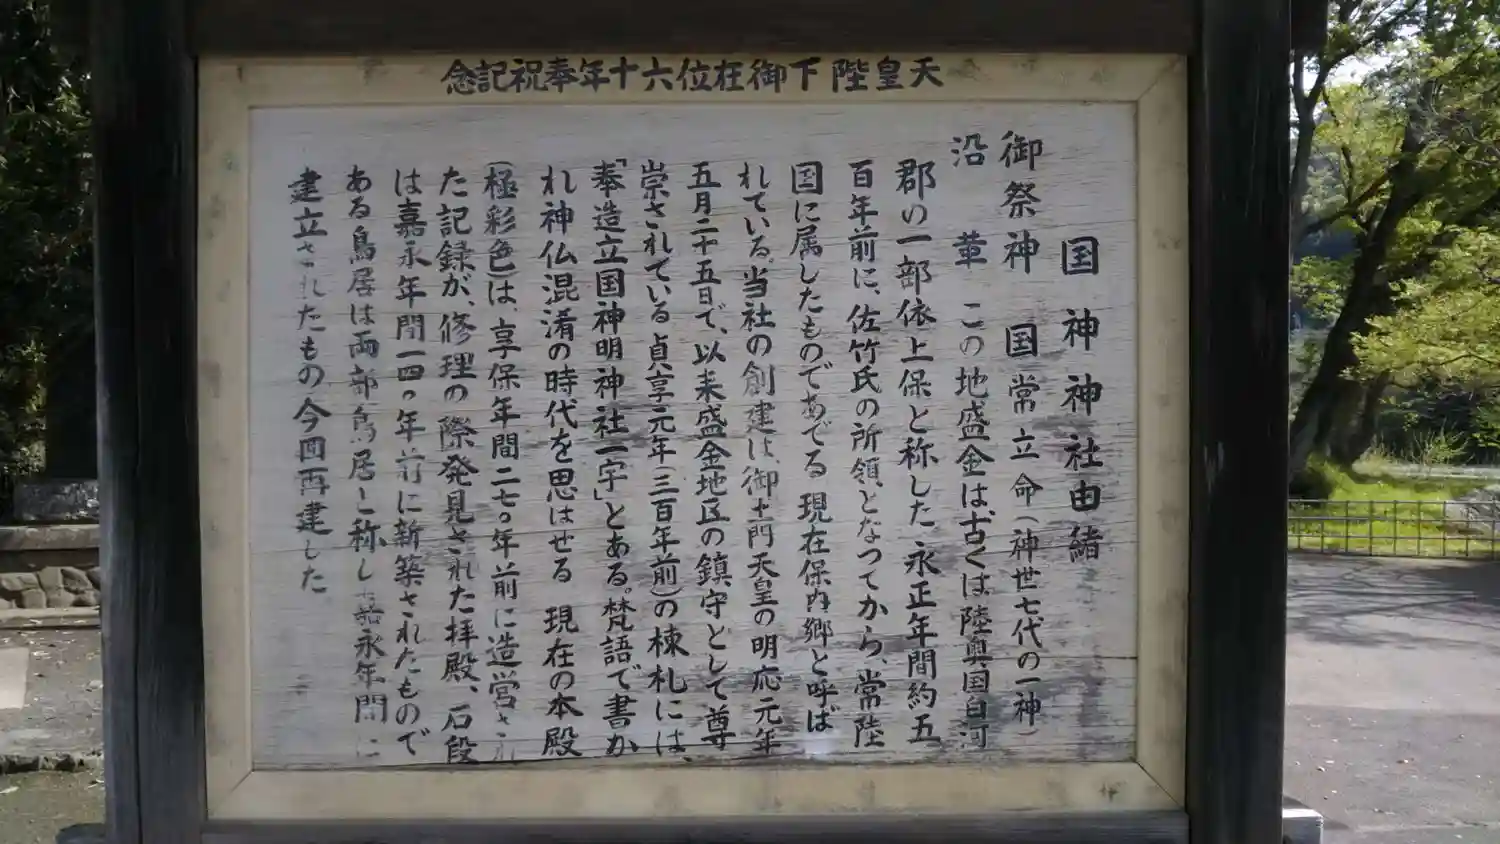 天皇陛下御在位六十年奉祝記念
国神神社由緒
御祭神 国常立命(神世七代の一神)
沿革 この地盛金は、古くは陸奥国白河
郡の一部依上保と称した、永正年間約五
百年前に、佐竹氏の所領となつてから、常陸
国に属したものであでる 現在保内郷と呼ば
れている。当社の創建は、御土門天皇の明応元年
五月二十五日で、以来盛金地区の鎮守として尊
崇されている 貞享元年(三百年前)の棟札には、
「奉造立国神明神社一宇」とある。梵語で書か
れ神仏混淆の時代を思はせる 現在の本殿
(極彩色)は、享保年間二七〇年前に造営され
た記録が、修理の際発見された拝殿、石段
は嘉永年間一四〇年前に新築されたもので
ある鳥居は両部鳥居と称し嘉永年間に
建立されたもの今回再建した